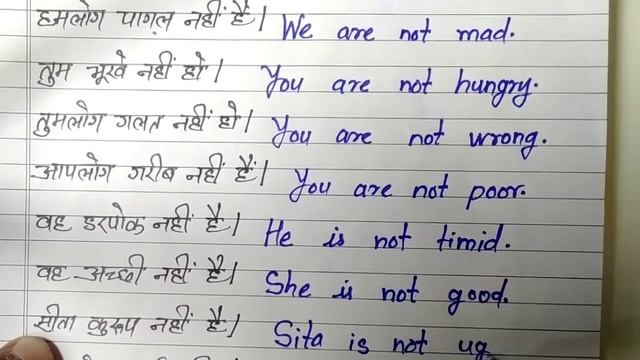 हमलोग पागल नहीं हैं। We are not mad.
तुम भूखे नहीं हो। You are not hungry.
तुमलोग गलत नहीं हो। You are not wrong.
आपलोग गरीब नहीं हैं। You are not poor.
वह डरपोक नहीं है। He is not timid.
वह अच्छी नहीं है। She is not good.
सीता कुरूप नहीं है। Sita is not ug